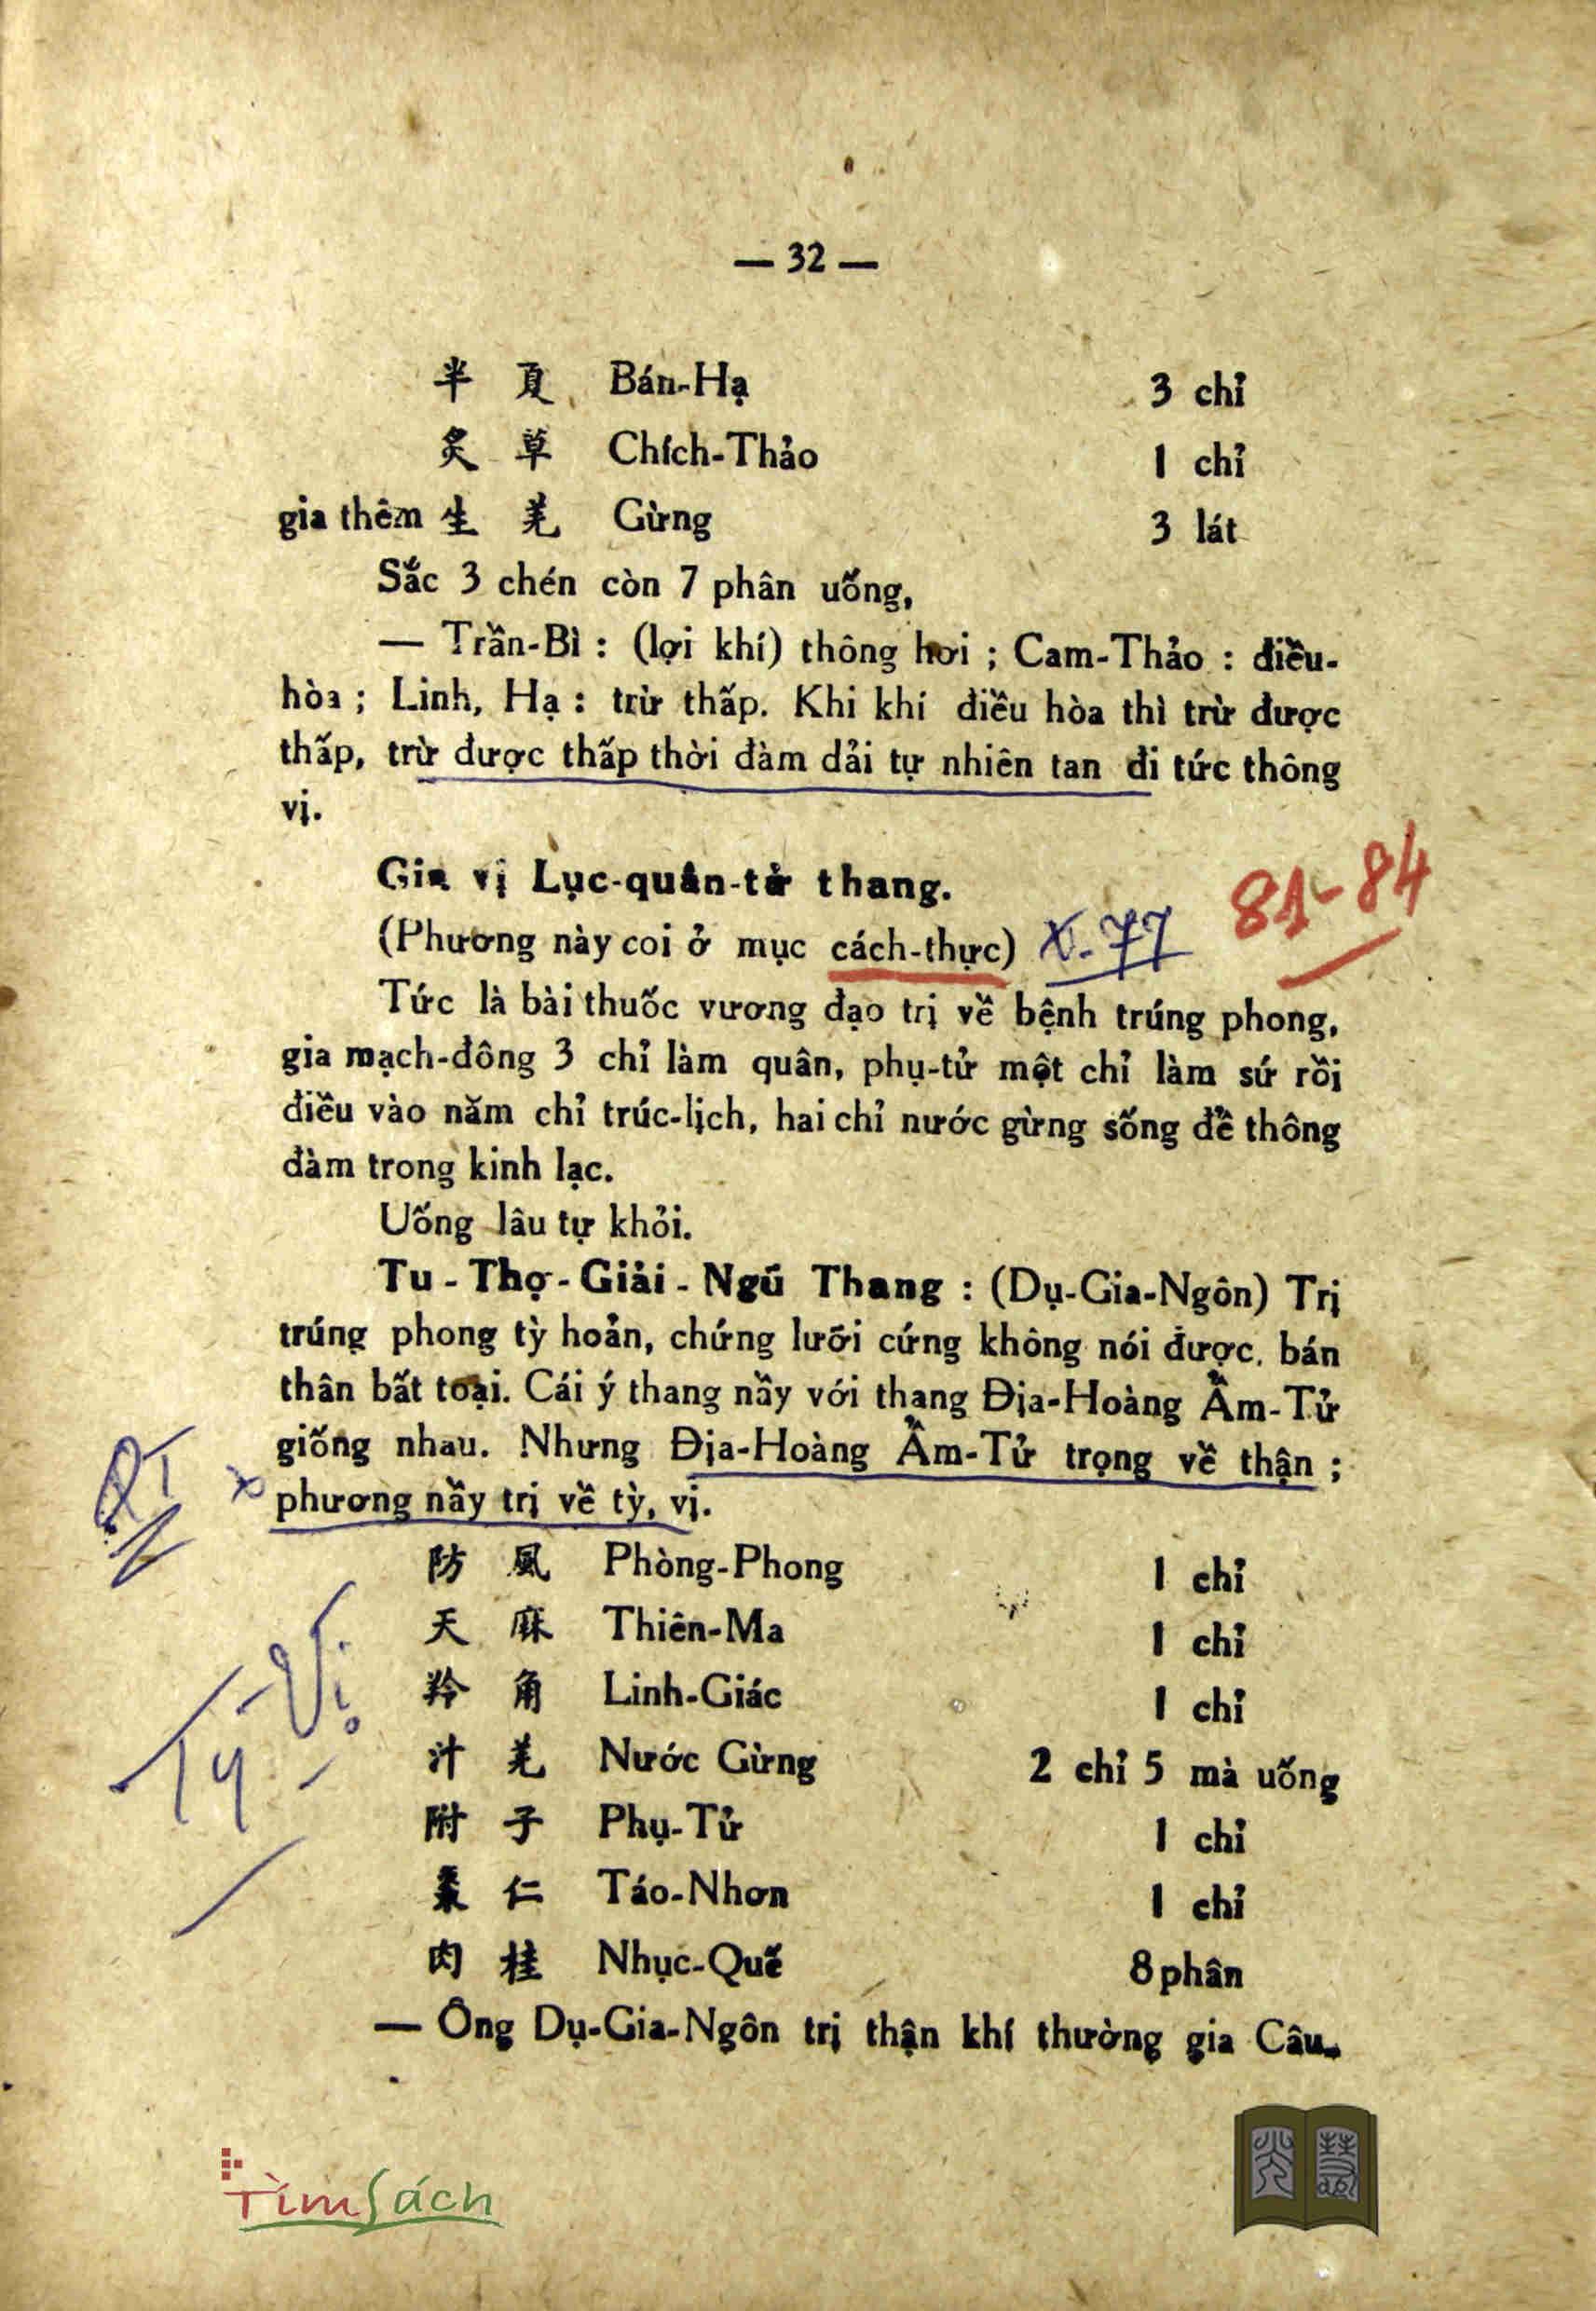 — 32 —
半 夏 Bán-Hạ 3 chỉ
炙 草 Chích-Thảo 1 chỉ
gia thêm 生 羌 Gừng 3 lát
Sắc 3 chén còn 7 phân uống,
— Trần-Bì : (lợi khí) thông hơi ; Cam-Thảo : điều-
hòa ; Linh, Hạ : trừ thấp. Khi khí điều hòa thì trừ được
thấp, trừ được thấp thời đàm dải tự nhiên tan đi tức thông
vị.
Gia vị Lục-quân-tử thang.
81-84
(Phương này coi ở mục cách-thực) X. 77
Tức là bài thuốc vương đạo trị về bệnh trúng phong,
gia mạch-đông 3 chỉ làm quân, phụ-tử một chỉ làm sứ rồi
điều vào năm chỉ trúc-lịch, hai chỉ nước gừng sống để thông
đàm trong kinh lạc.
Uống lâu tự khỏi.
Tu - Thọ - Giải - Ngữ Thang : (Dụ-Gia-Ngôn) Trị
trúng phong tỳ hoản, chứng lưỡi cứng không nói được, bán
thân bất toại. Cái ý thang nầy với thang Địa-Hoàng Ẩm-Tử
giống nhau. Nhưng Địa-Hoàng Ẩm-Tử trọng về thận ;
x phương nầy trị về tỳ, vị.
防 風 Phòng-Phong 1 chỉ
天 麻 Thiên-Ma 1 chỉ
羚 角 Linh-Giác 1 chỉ
Tỳ - Vị
汁 羌 Nước Gừng 2 chỉ 5 mà uống
附 子 Phụ-Tử 1 chỉ
棗 仁 Táo-Nhơn 1 chỉ
肉 桂 Nhục-Quế 8 phân
— Ông Dụ-Gia-Ngôn trị thận khí thường gia Câu-
TìmSách